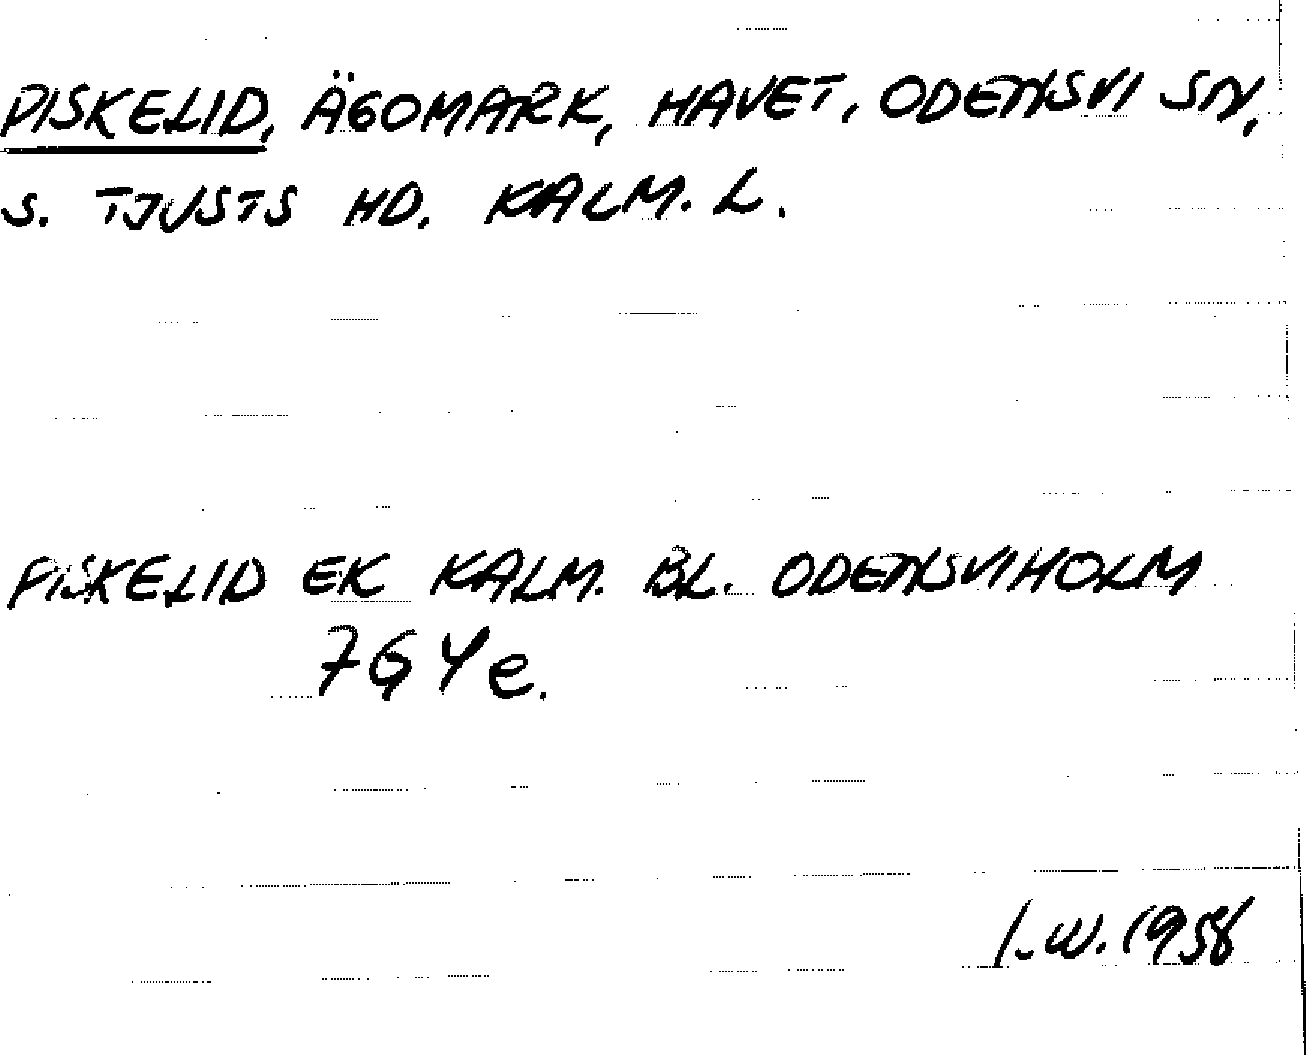 PISKELID, ÄGOMARK, HAVET, ODENSVI SN,
S. TJUSTS HD. KALM. L.
PISKELID EK KALM. BL. ODENSVIHOLM
7G 4e.
I.W. 1958